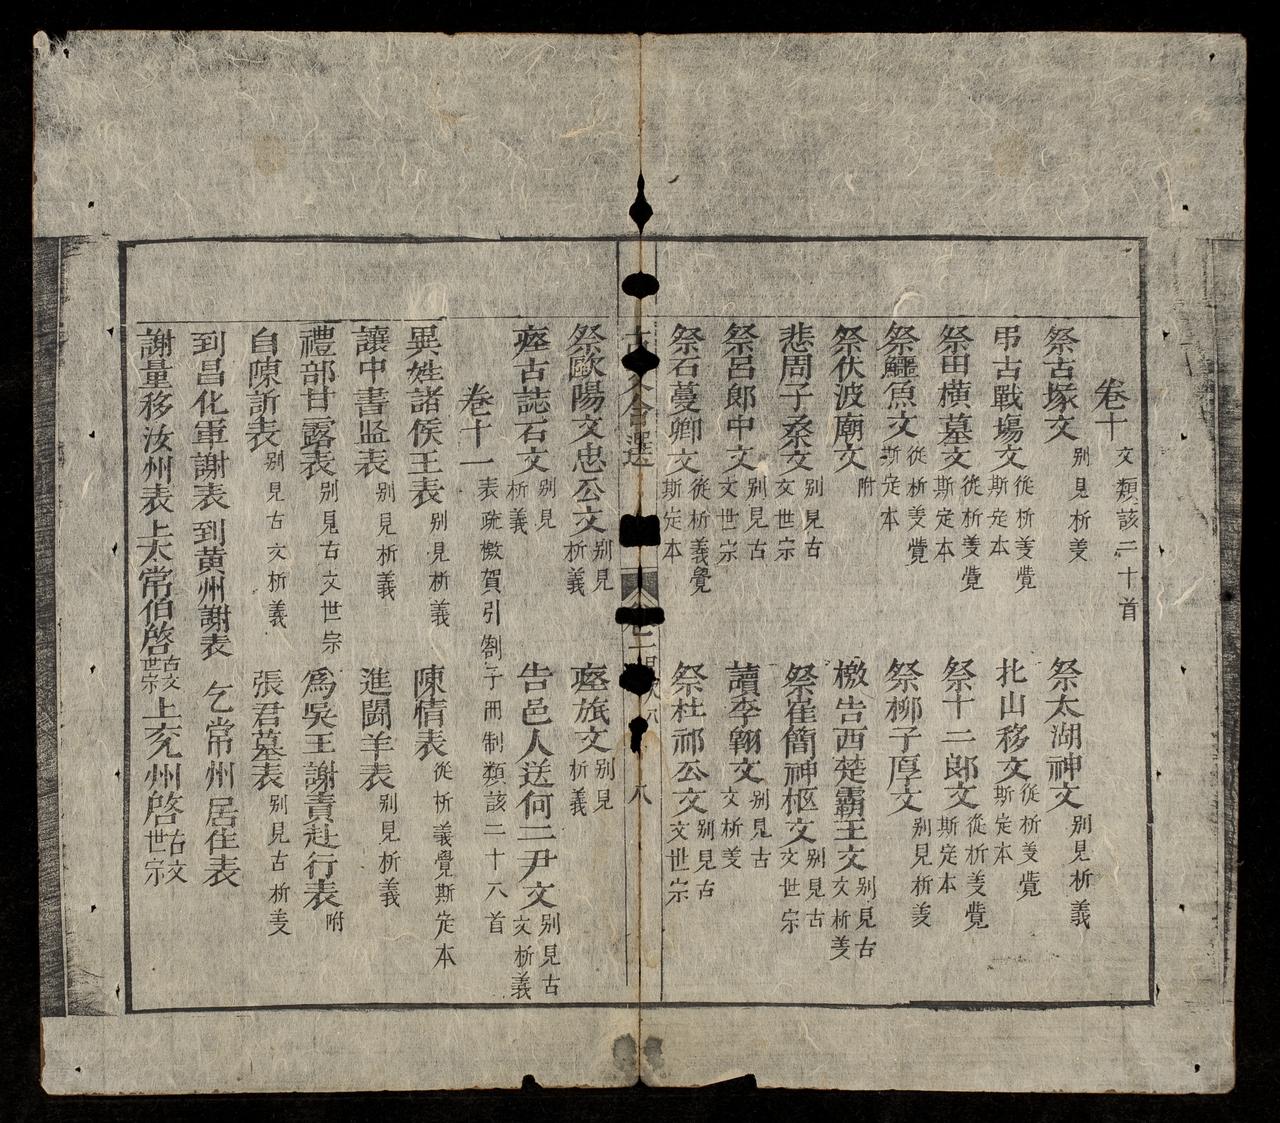 卷十 文類該二十首
祭古塚文 别見析義 祭太湖神文 别見析義
弔古戰塲文 從析義覺斯定本 北山移文 從析義覺斯定本
祭田橫墓文 從析義覺斯定本 祭十二郎文 從析義覺斯定本
祭鱷魚文 從析義覺斯定本 祭柳子厚文 别見析義
祭伏波廟文 附 檄告西楚霸王文 别見古文析義
悲周子桑文 别見古文世宗 祭崔簡神柩文 别見古文世宗
祭呂郎中文 别見古文世宗 讀李翱文 别見古文析義
祭石蔓卿文 從析義覺斯定本 祭杜祁公文 别見古文世宗
古文合選 八
祭歐陽文忠公文 别見析義 瘞旅文 别見析義
瘞古誌石文 别見析義 告邑人送何二尹文 别見古文析義
卷十一 表疏檄賀引劄子冊制類該二十六首
異姓諸侯王表 别見析義 陳情表 從析義覺斯定本
讓中書监表 别見析義 進鬪羊表 别見析義
禮部甘露表 别見古文世宗 爲吳王謝責赴行表 附
自陳訴表 别見古文析義 張君墓表 别見古析義
到昌化軍謝表 到黄州謝表 乞常州居住表
謝量移汝州表 上太常伯啓 古文世宗 上兗州啓 古文世宗